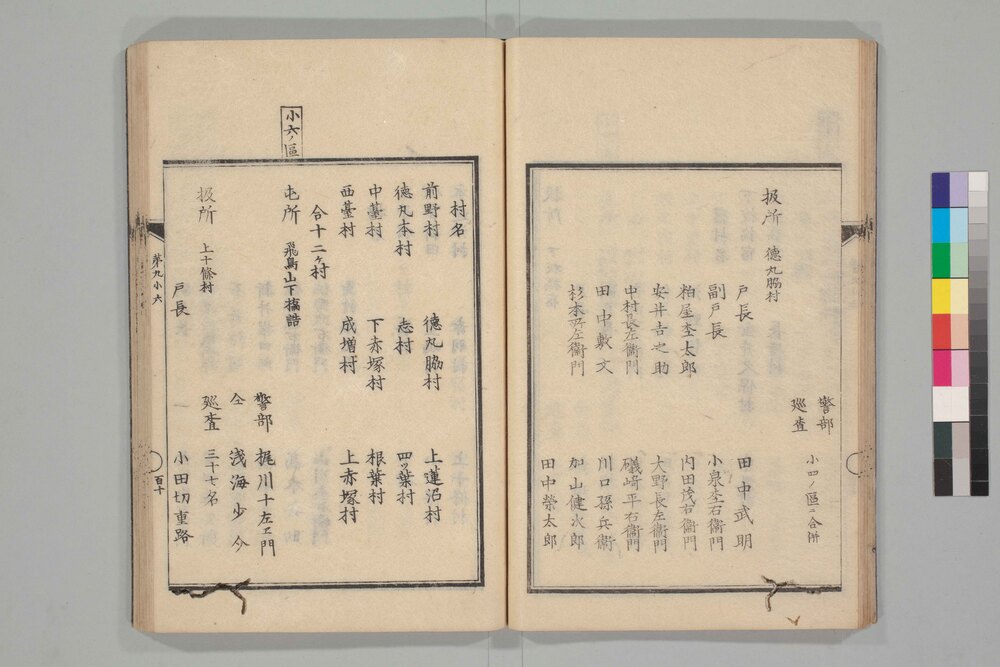 警部
巡査 小四ノ區ニ合併
扱所 德丸脇村
戸長 田中武明
副戸長 小泉杢右衞門
粕屋杢太郎 内田茂右衞門
安井吉之助 大野長左衞門
中村長左衞門 礒﨑平右衞門
田中敷文 川口孫兵衞
杉本 左衞門 加山健次郎
田中榮太郎
村名
前野村 德丸脇村 上蓮沼村
德丸本村 志村 四ッ葉村
中䑓村 下赤塚村 根葉村
西䑓村 成増村 上赤塚村
合十二ヶ村
小六ノ區
屯所 飛鳥山下橋詰 警部 梶川十左ヱ門
仝 浅海少今
扱所 上十條村 巡査 三十七名
戸長 小田切重路
第九小六
百十